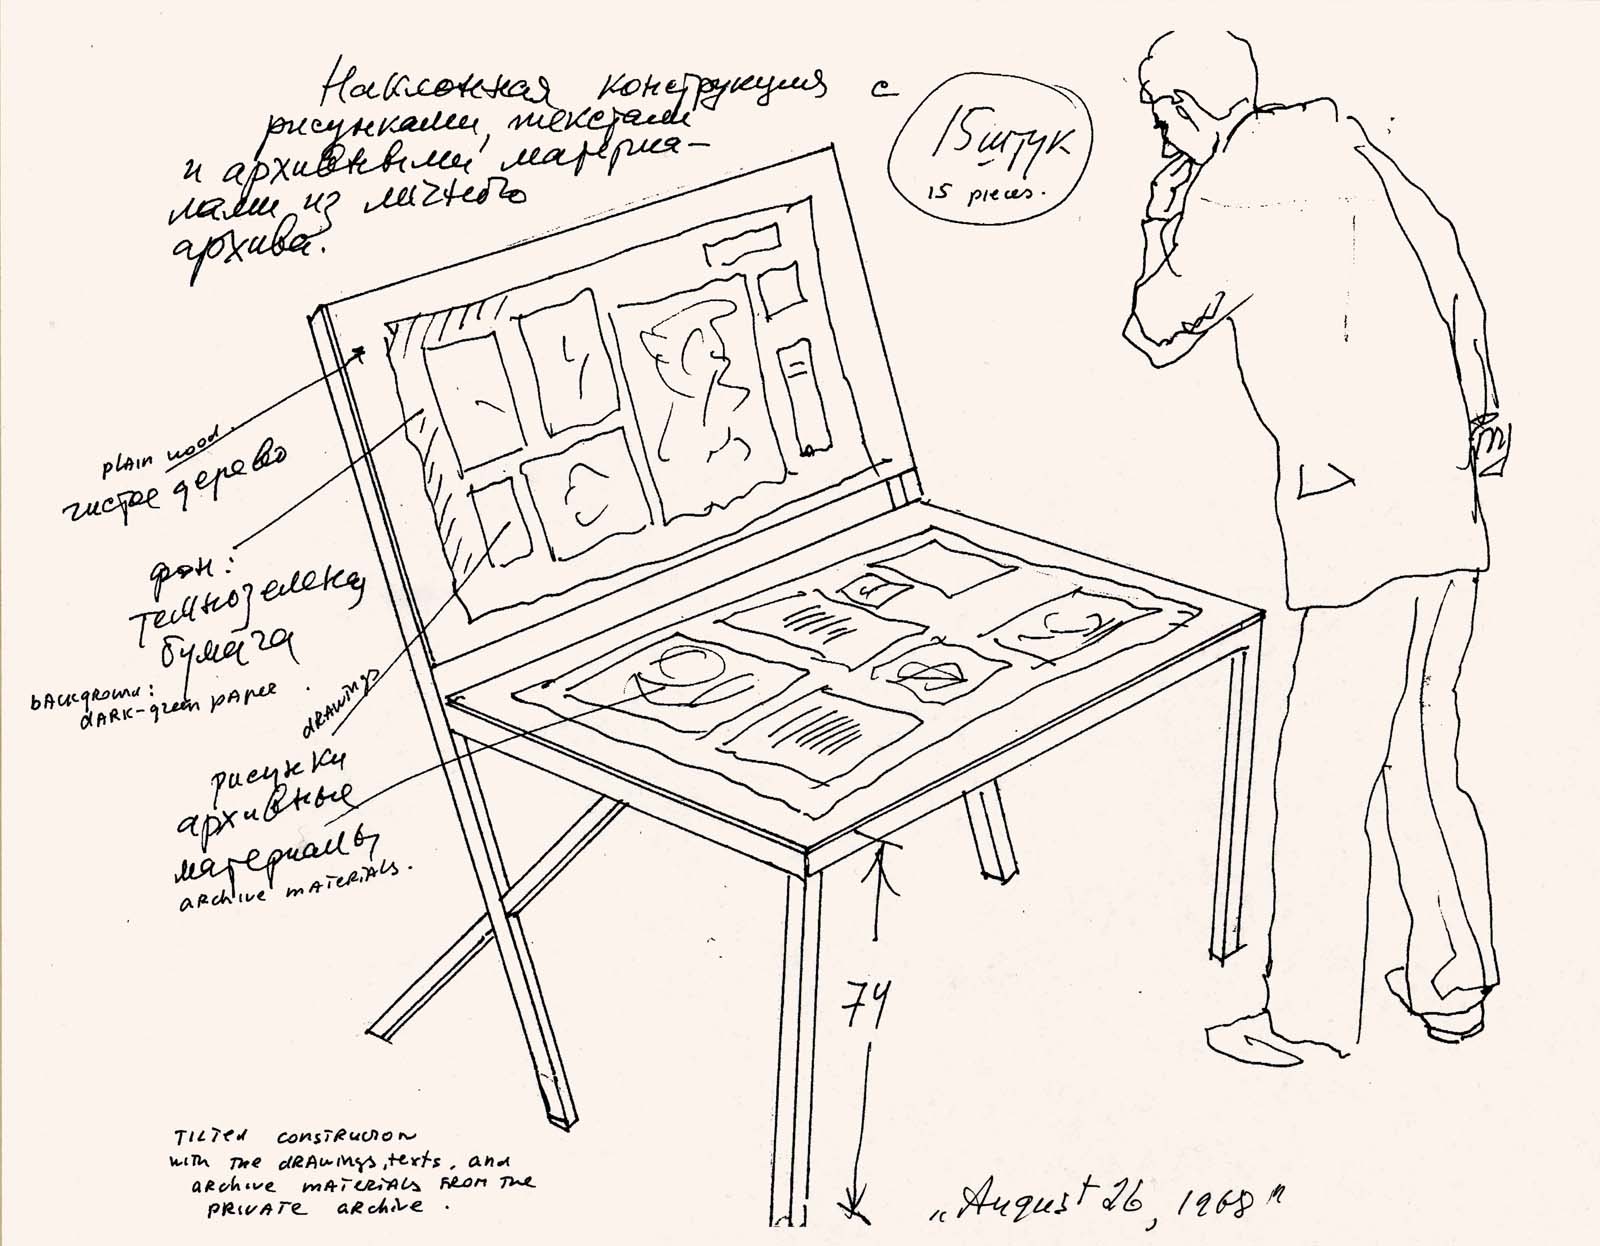 Наклонная конструкция с
рисунками, текстами
и архивными материа-
лами из личного
архива.
15 штук
15 pieces.
plain wood.
чистое дерево
фон:
темнозеленая
бумага
background:
dark-green paper.
drawings
рисунки
архивные
материалы
archive materials.
74
Tilted construction
with the drawings, texts, and
archive materials from the
private archive.
„August 26, 1968"